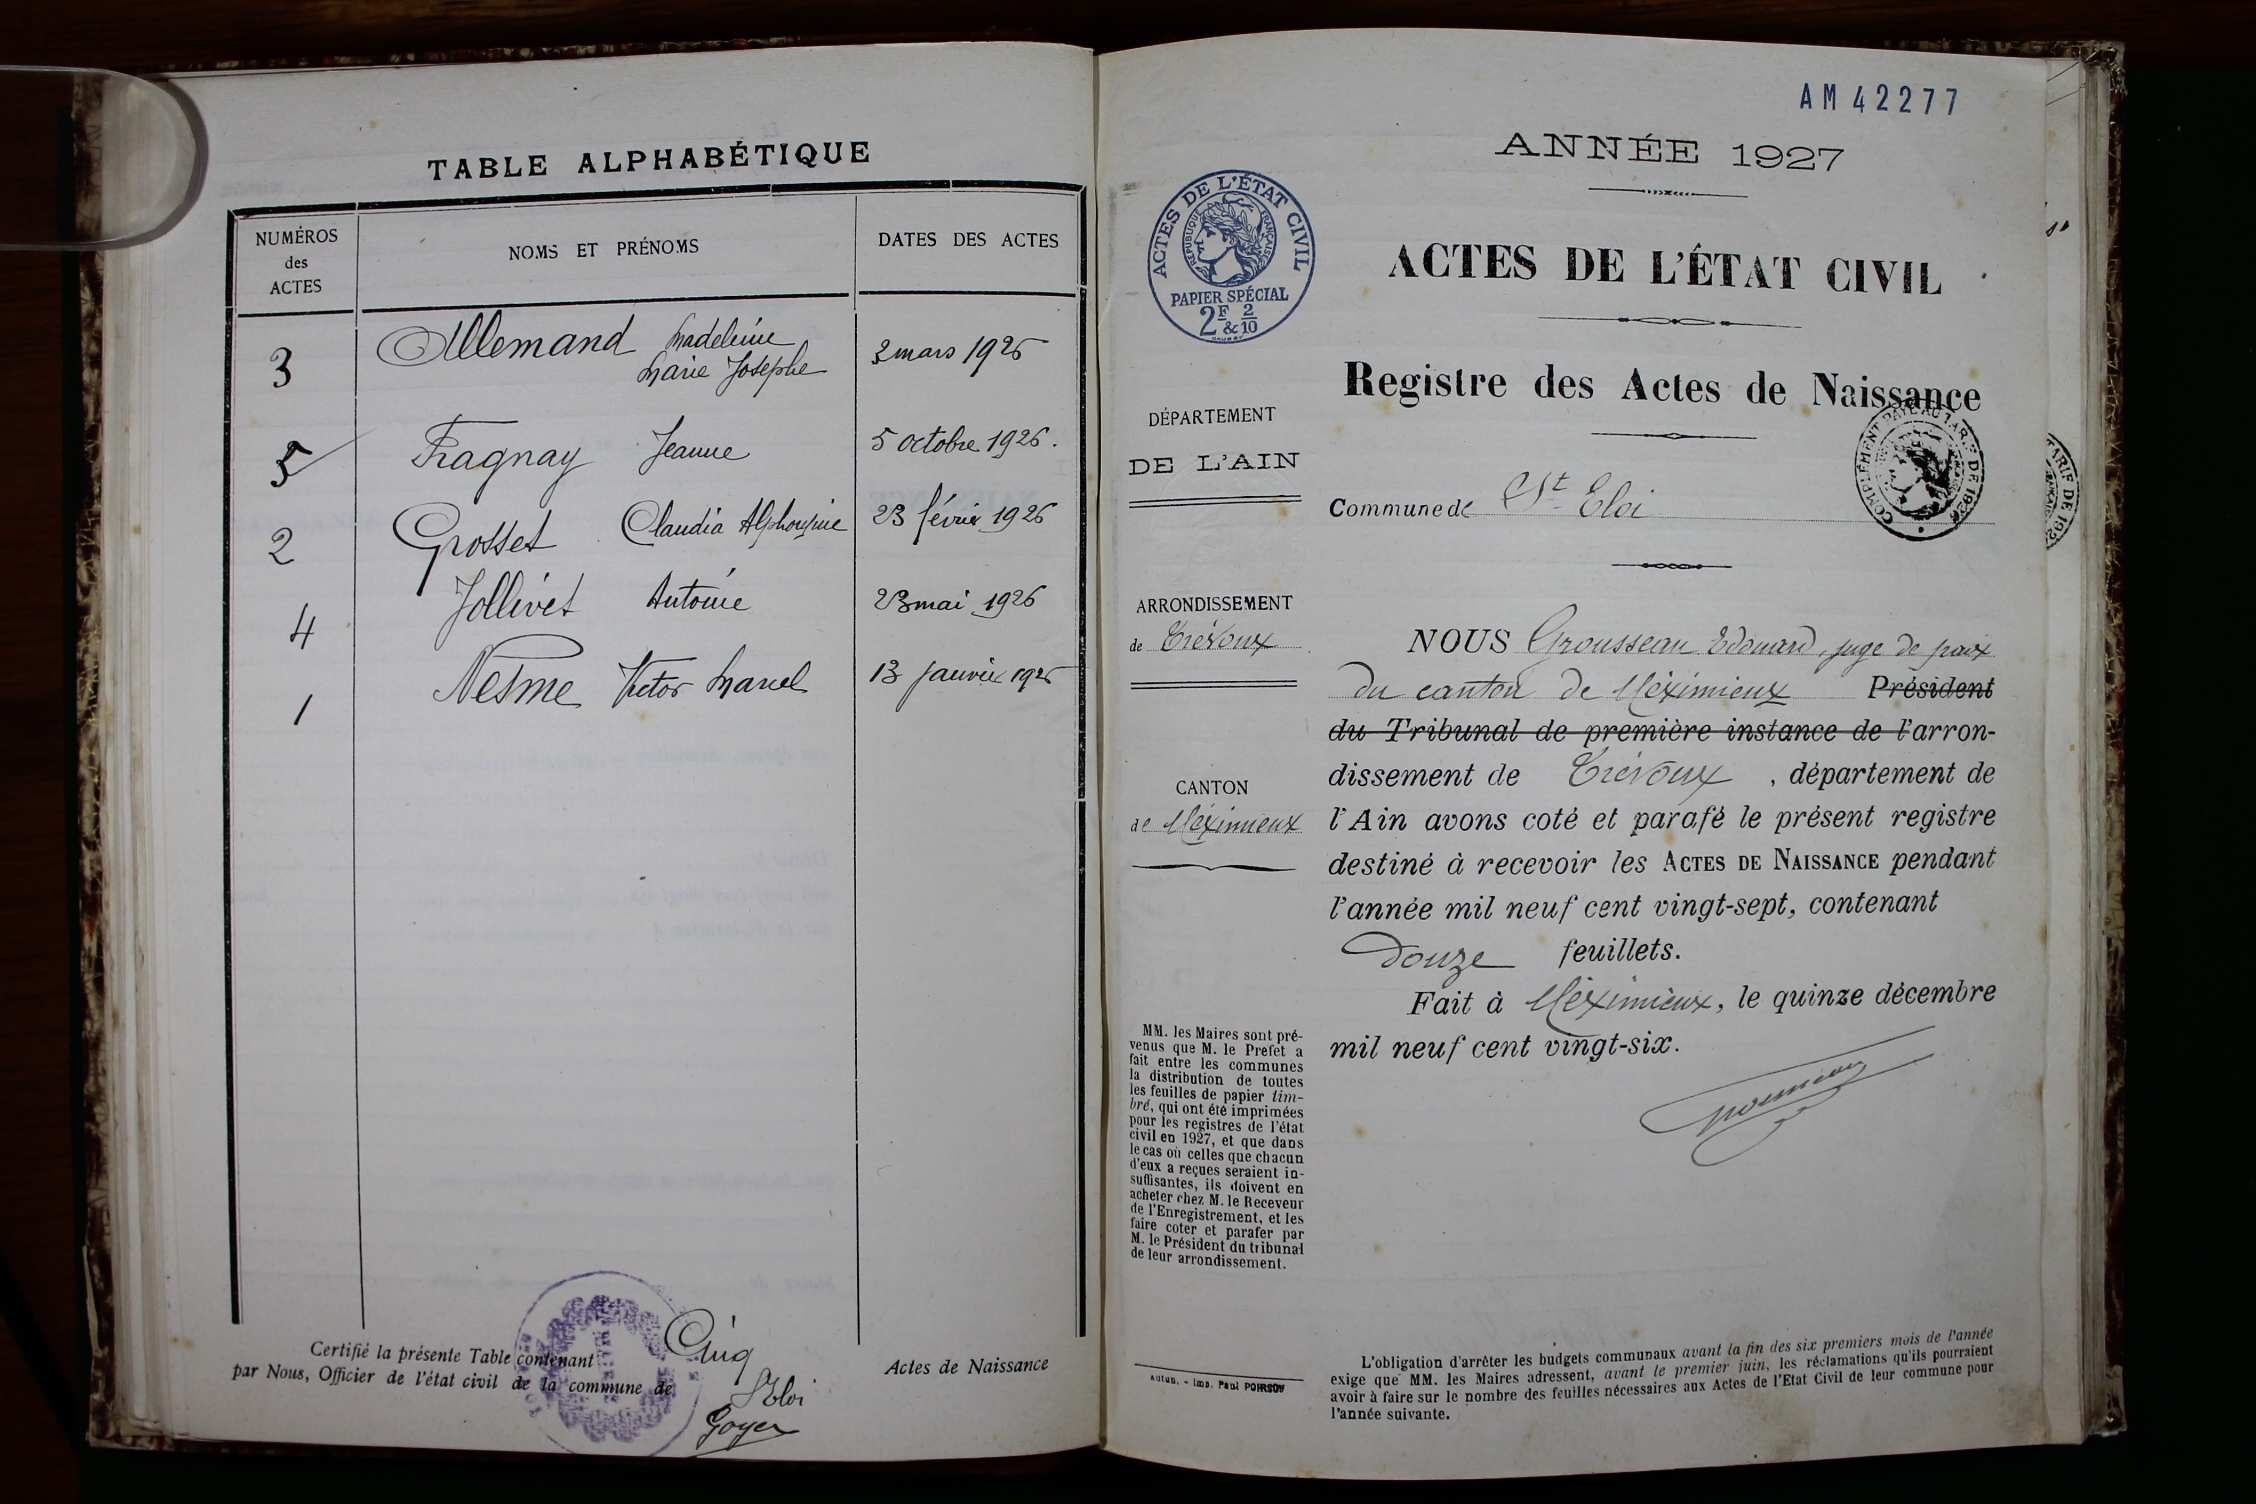 TABLE ALPHABÉTIQUE
NUMÉROS
des
ACTES
NOMS ET PRÉNOMS
DATES DES ACTES
3 Allemand Madeleine
Marie Josephe 2 mars 1926
5 Fragnay Jeanne 5 octobre 1926.
2 Grosset Claudia Alphonsine 23 février 1926
4 Jollivet Antoine 23 mai 1926
1 Nesme Victor Marcel 13 janvier 1926
Certifié la présente Table contenant Cinq Actes de Naissance
par Nous, Officier de l'état civil de la commune de St Eloi
Goyer
AM 42277
ANNÉE 1927
ACTES DE L'ÉTAT CIVIL
RÉPUBLIQUE FRANÇAISE
PAPIER SPÉCIAL
2F & 2/10
ACTES DE L'ÉTAT CIVIL
Registre des Actes de Naissance
COMPLÉMENT PAYÉ AU TARIF DE 1926
TARIF DE 192
DÉPARTEMENT
DE L'AIN
Commune de St Eloi
ARRONDISSEMENT
de Trévoux
CANTON
de Méximieux
NOUS Grousseau Edouard, juge de paix
du canton de Méximieux Président
du Tribunal de première instance de l'arron-
dissement de Trévoux, département de
l'Ain avons coté et parafé le présent registre
destiné à recevoir les ACTES DE NAISSANCE pendant
l'année mil neuf cent vingt-sept, contenant
Douze feuillets.
Fait à Méximieux, le quinze décembre
mil neuf cent vingt-six.
MM. les Maires sont pré-
venus que M. le Prefet a
fait entre les communes
la distribution de toutes
les feuilles de papier tim-
bré, qui ont été imprimées
pour les registres de l'état
civil en 1927, et que dans
le cas où celles que chacun
d'eux a reçues seraient in-
suffisantes, ils doivent en
acheter chez M. le Receveur
de l'Enregistrement, et les
faire coter et parafer par
M. le Président du tribunal
de leur arrondissement.
Autun. - Imp. Paul POIRSON
L'obligation d'arrêter les budgets communaux avant la fin des six premiers mois de l'année
exige que MM. les Maires adressent, avant le premier juin, les réclamations qu'ils pourraient
avoir à faire sur le nombre des feuilles nécessaires aux Actes de l'Etat Civil de leur commune pour
l'année suivante.